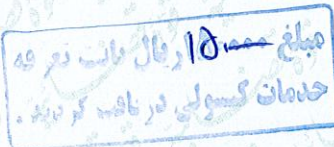 مبلغ ۱۵۰۰۰۰ ریال بابت تعرفه
خدمات کنسولی دریافت گردید.